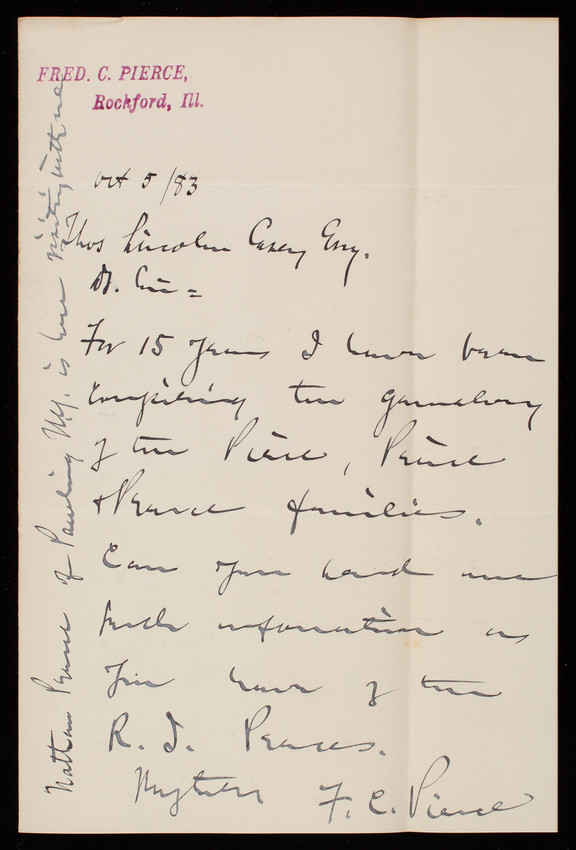 FRED. C. PIERCE,
Rockford, Ill.
Oct 5/83
Thos Lincoln Casey Esq.
D. Sir =
For 15 years I have been
compiling the genealogy
of the Pierce, Peirce
& Pearce families.
Can you hand me
such information as
you have of the
R. I. Pearces.
F. C. Pierce
Nathan Pearce of Pawling N.Y. is here visiting with me